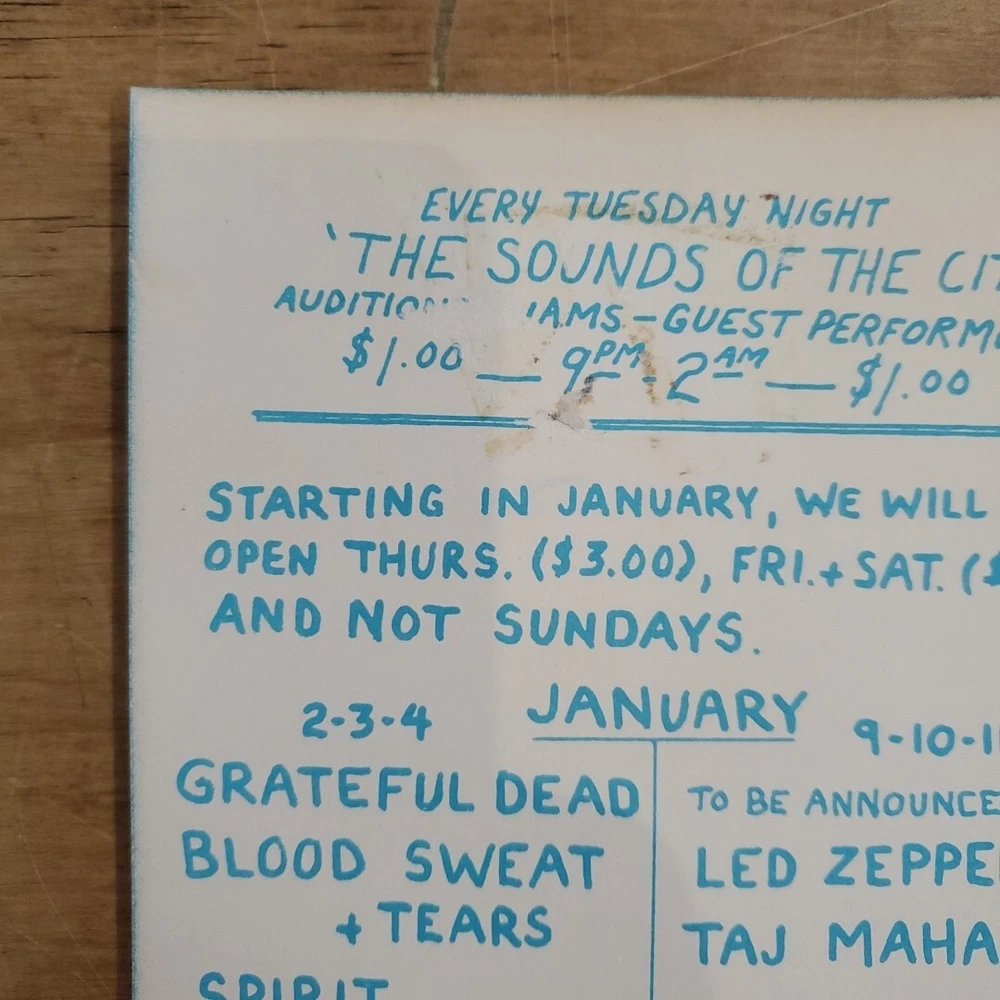 EVERY TUESDAY NIGHT
'THE SOUNDS OF THE CIT
AUDITIONS JAMS - GUEST PERFORM
$1.00 — 9PM - 2AM — $1.00
STARTING IN JANUARY, WE WILL
OPEN THURS. ($3.00), FRI. + SAT. ($
AND NOT SUNDAYS.
JANUARY
2-3-4
GRATEFUL DEAD
BLOOD SWEAT
+ TEARS
SPIRIT
9-10-11
TO BE ANNOUNCE
LED ZEPPE
TAJ MAHA